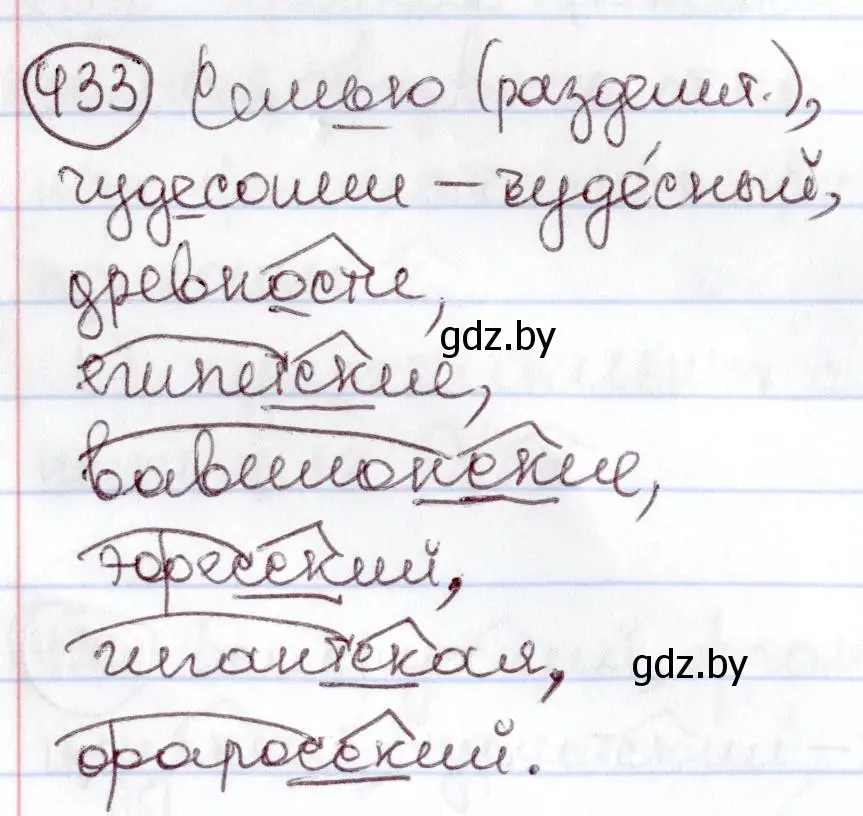 433 Семью (разделит.),
чудесами – чуде́сный,
древности,
египетские,
gdz.by
вавилонские,
эфесский,
гигантская,
gdz.by
фаросский.